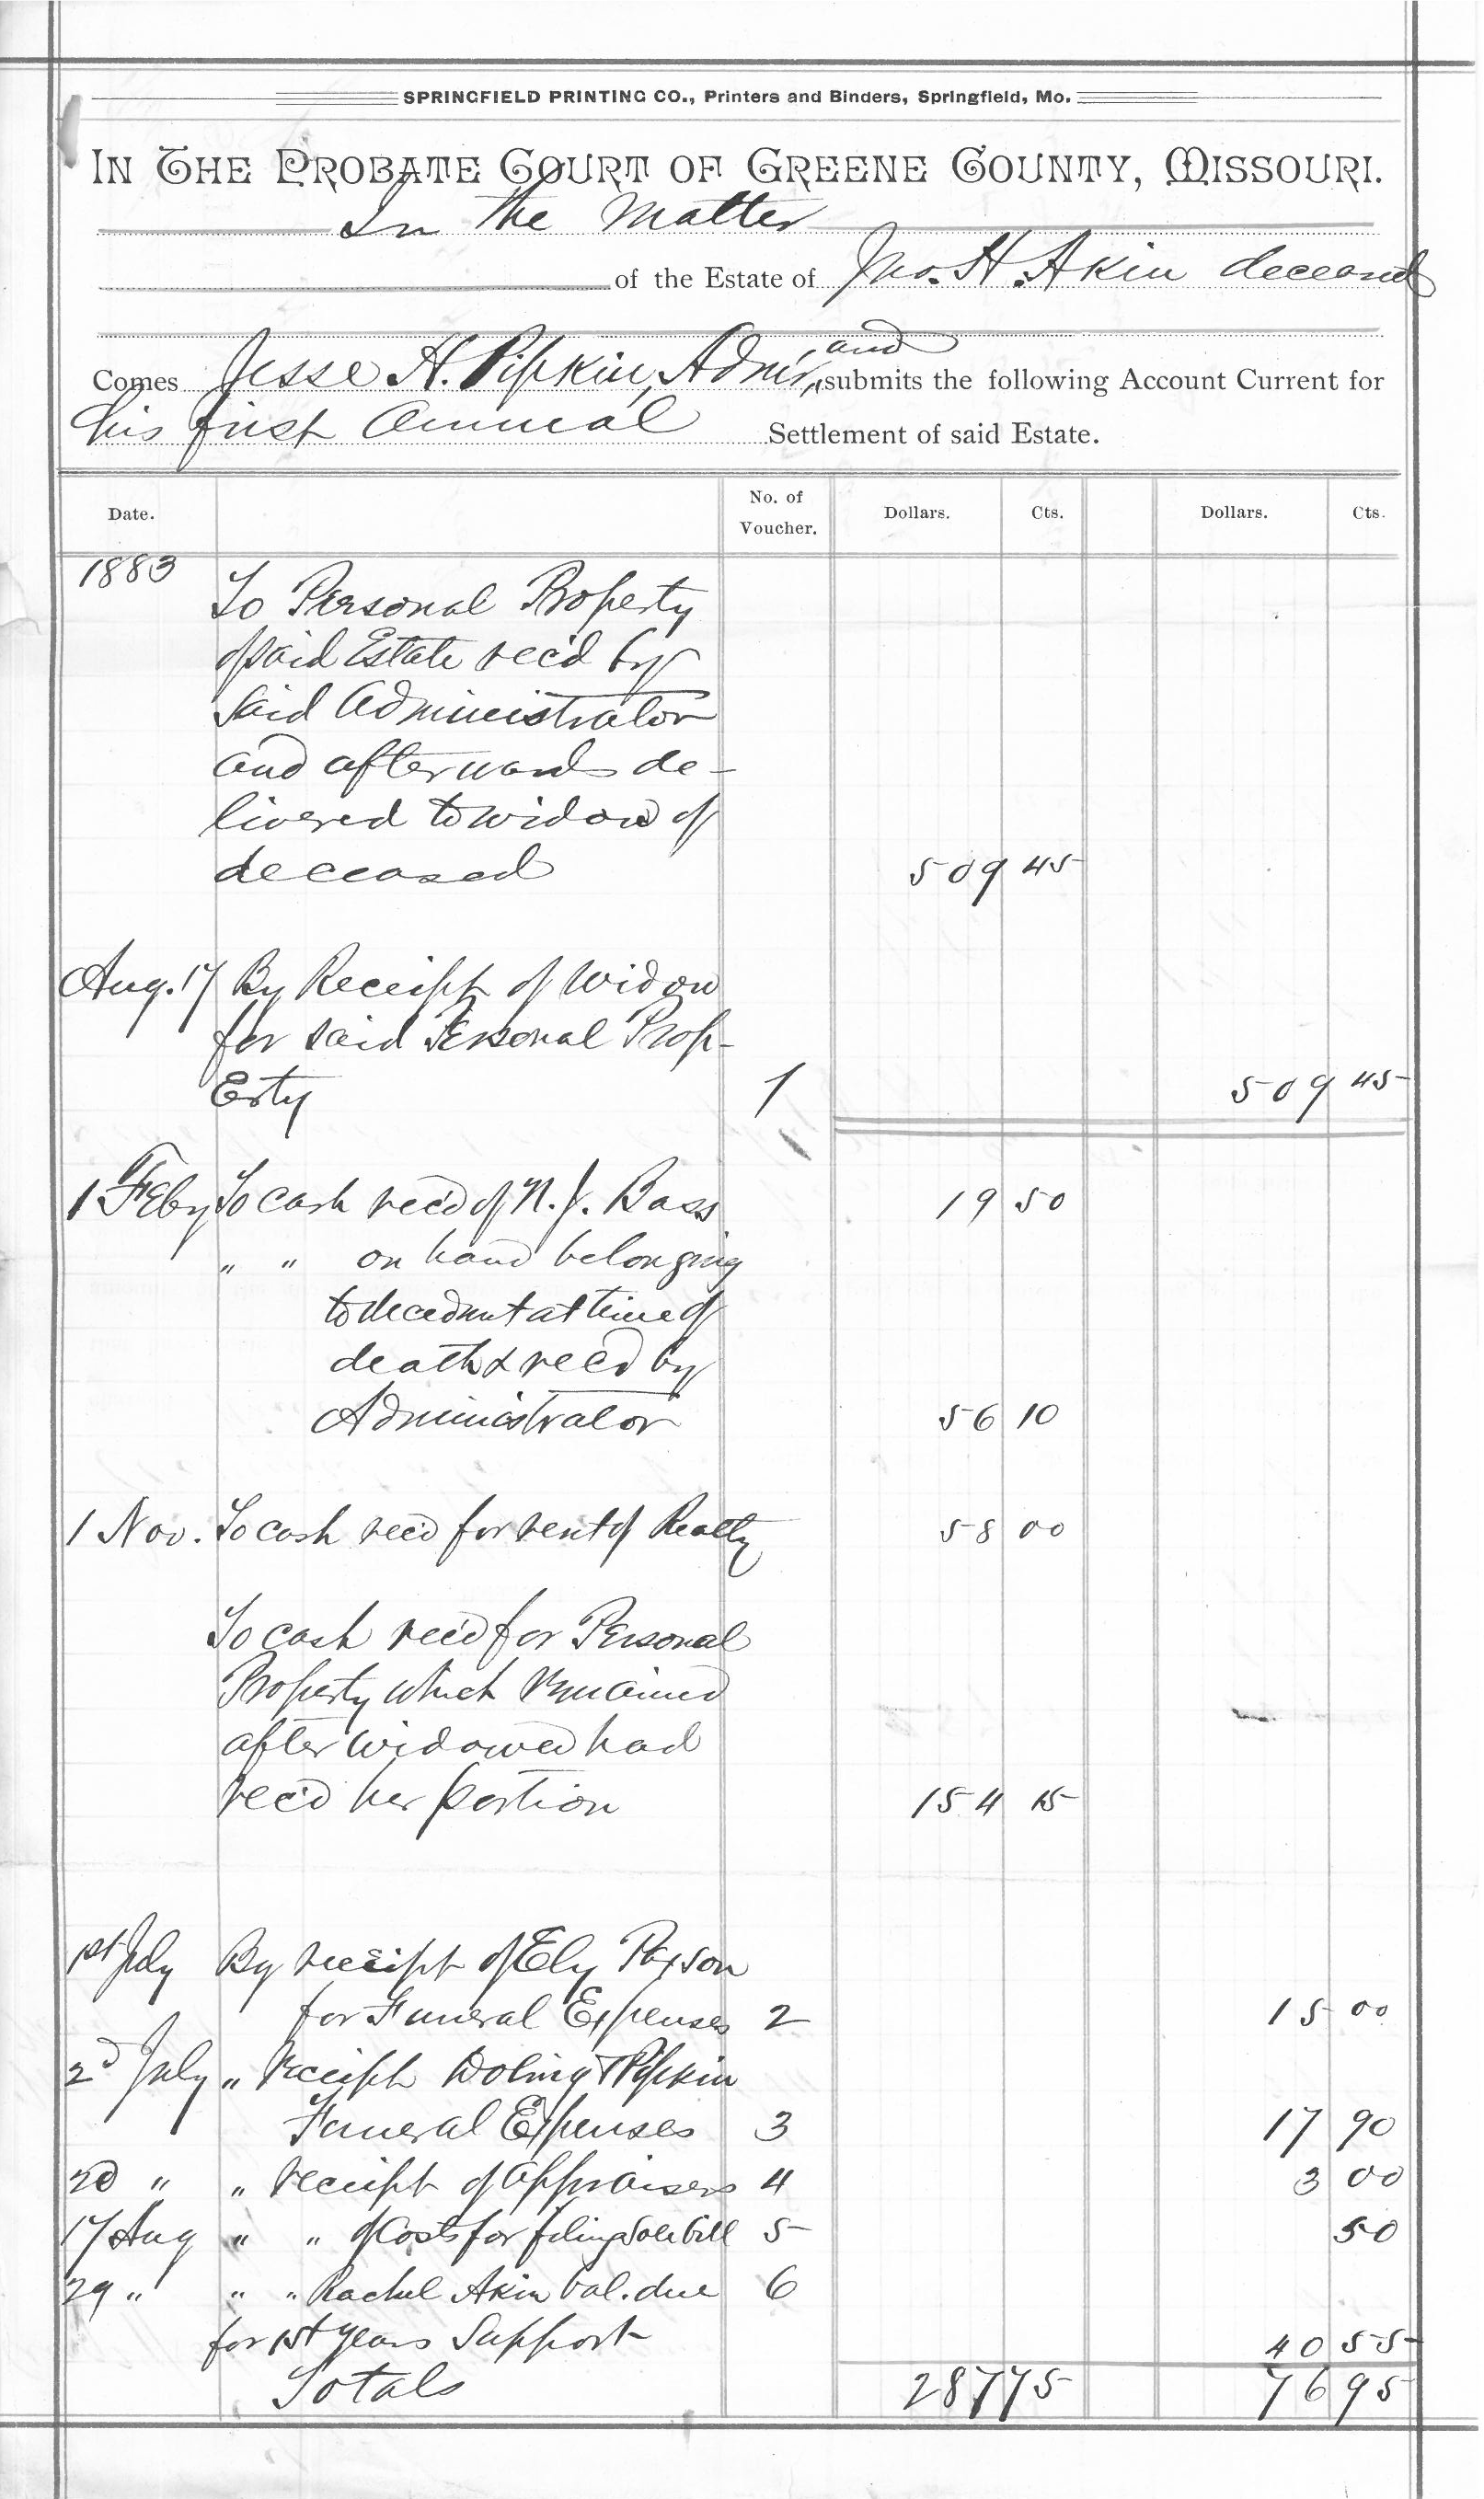 SPRINGFIELD PRINTING CO., Printers and Binders, Springfield, Mo.
IN THE PROBATE COURT OF GREENE COUNTY, MISSOURI.
In the Matter
of the Estate of Jno. H. Akin deceased
and
Comes Jesse H. Pipkin, Admr, submits the following Account Current for
his first Annual Settlement of said Estate.
Date. No. of Voucher. Dollars. Cts. Dollars. Cts.
1883
To Personal Property
of said Estate rec'd by
said Administrator
and afterwards de-
livered to widow of
deceased 509 45
Aug. 17 By Receipt of Widow
for said Personal Prop-
erty 1 509 45
1 Feby To cash rec'd of N. J. Bass 19 50
" " on hand belonging
to decednt at time of
death & rec'd by
Administrator 56 10
1 Nov. To cash rec'd for rent of Realty 58 00
To cash rec'd for Personal
Property which remained
after widowed had
rec'd her portion 154 15
1st July By receipt of Ely Paxson
for Funeral Expenses 2 15 00
2d July " Receipt Doling & Pipkin
Funeral Expenses 3 17 90
2d " " receipt of appraisers 4 3 00
17 Aug " " of Costs for filing Sale bill 5 50
29 " " " Rachel Akin bal. due 6
for 1st years Support 40 55
Totals 287 75 76 95